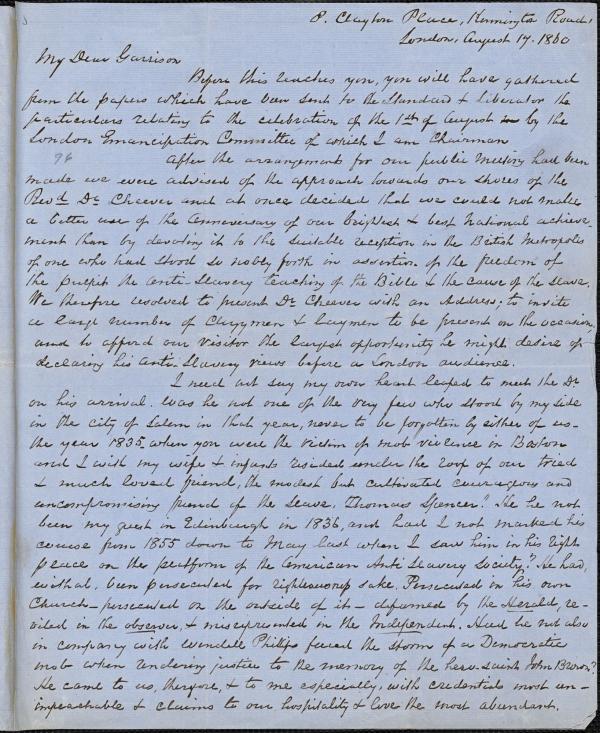 8. Clayton Place, Kennington Road,
London, August 17. 1860
My Dear Garrison
Before this reaches you, you will have gathered
from the papers which have been sent to the Standard & Liberator the
particulars relating to the celebration of the 1st of August by the
London Emancipation Committee of which I am Chairman
After the arrangements for our public Meeting had been
made we were advised of the approach towards our shores of the
Revd. Dr. Cheever and at once decided that we could not make
a better use of the Anniversary of our brightest & best National achieve-
ment than by devoting it to the suitable reception in the British Metropolis
of one who had stood so nobly forth in assertion of the freedom of
the pulpit the Anti-Slavery teaching of the Bible & the cause of the slave.
We therefore resolved to present Dr. Cheever with an Address; to invite
a large number of Clergymen & laymen to be present on the occasion
and to afford our visitor the largest opportunity he might desire of
declaring his Anti-Slavery views before a London audience.
I need not say my own heart leaped to meet the Dr
on his arrival. Was he not one of the very few who stood by my side
in the city of Salem in that year, never to be forgotten by either of us-
the year 1835- when you were the victim of mob violence in Boston
and I with my wife & infants resided under the roof of our tried
& much loved friend, the modest but cultivated courageous and
uncompromising friend of the slave, Thomas Spencer? Had he not
been my guest in Edinburgh in 1836, and had I not marked his
course from 1855 down to May last when I saw him in his right
place on the platform of the American Anti Slavery Society? He had,
withal, been persecuted for righteousness sake. Persecuted in his own
Church- persecuted on the outside of it- defamed by the Herald, re-
viled in the observer, & misrepresented in the Independent. Had he not also
in company with Wendell Philips faced the storm of a Democratic
mob when rendering justice to the memory of the hero-saint John Brown?
He came to us, therefore, & to me especially, with credentials most un-
impeachable & claims to our hospitality & love the most abundant.